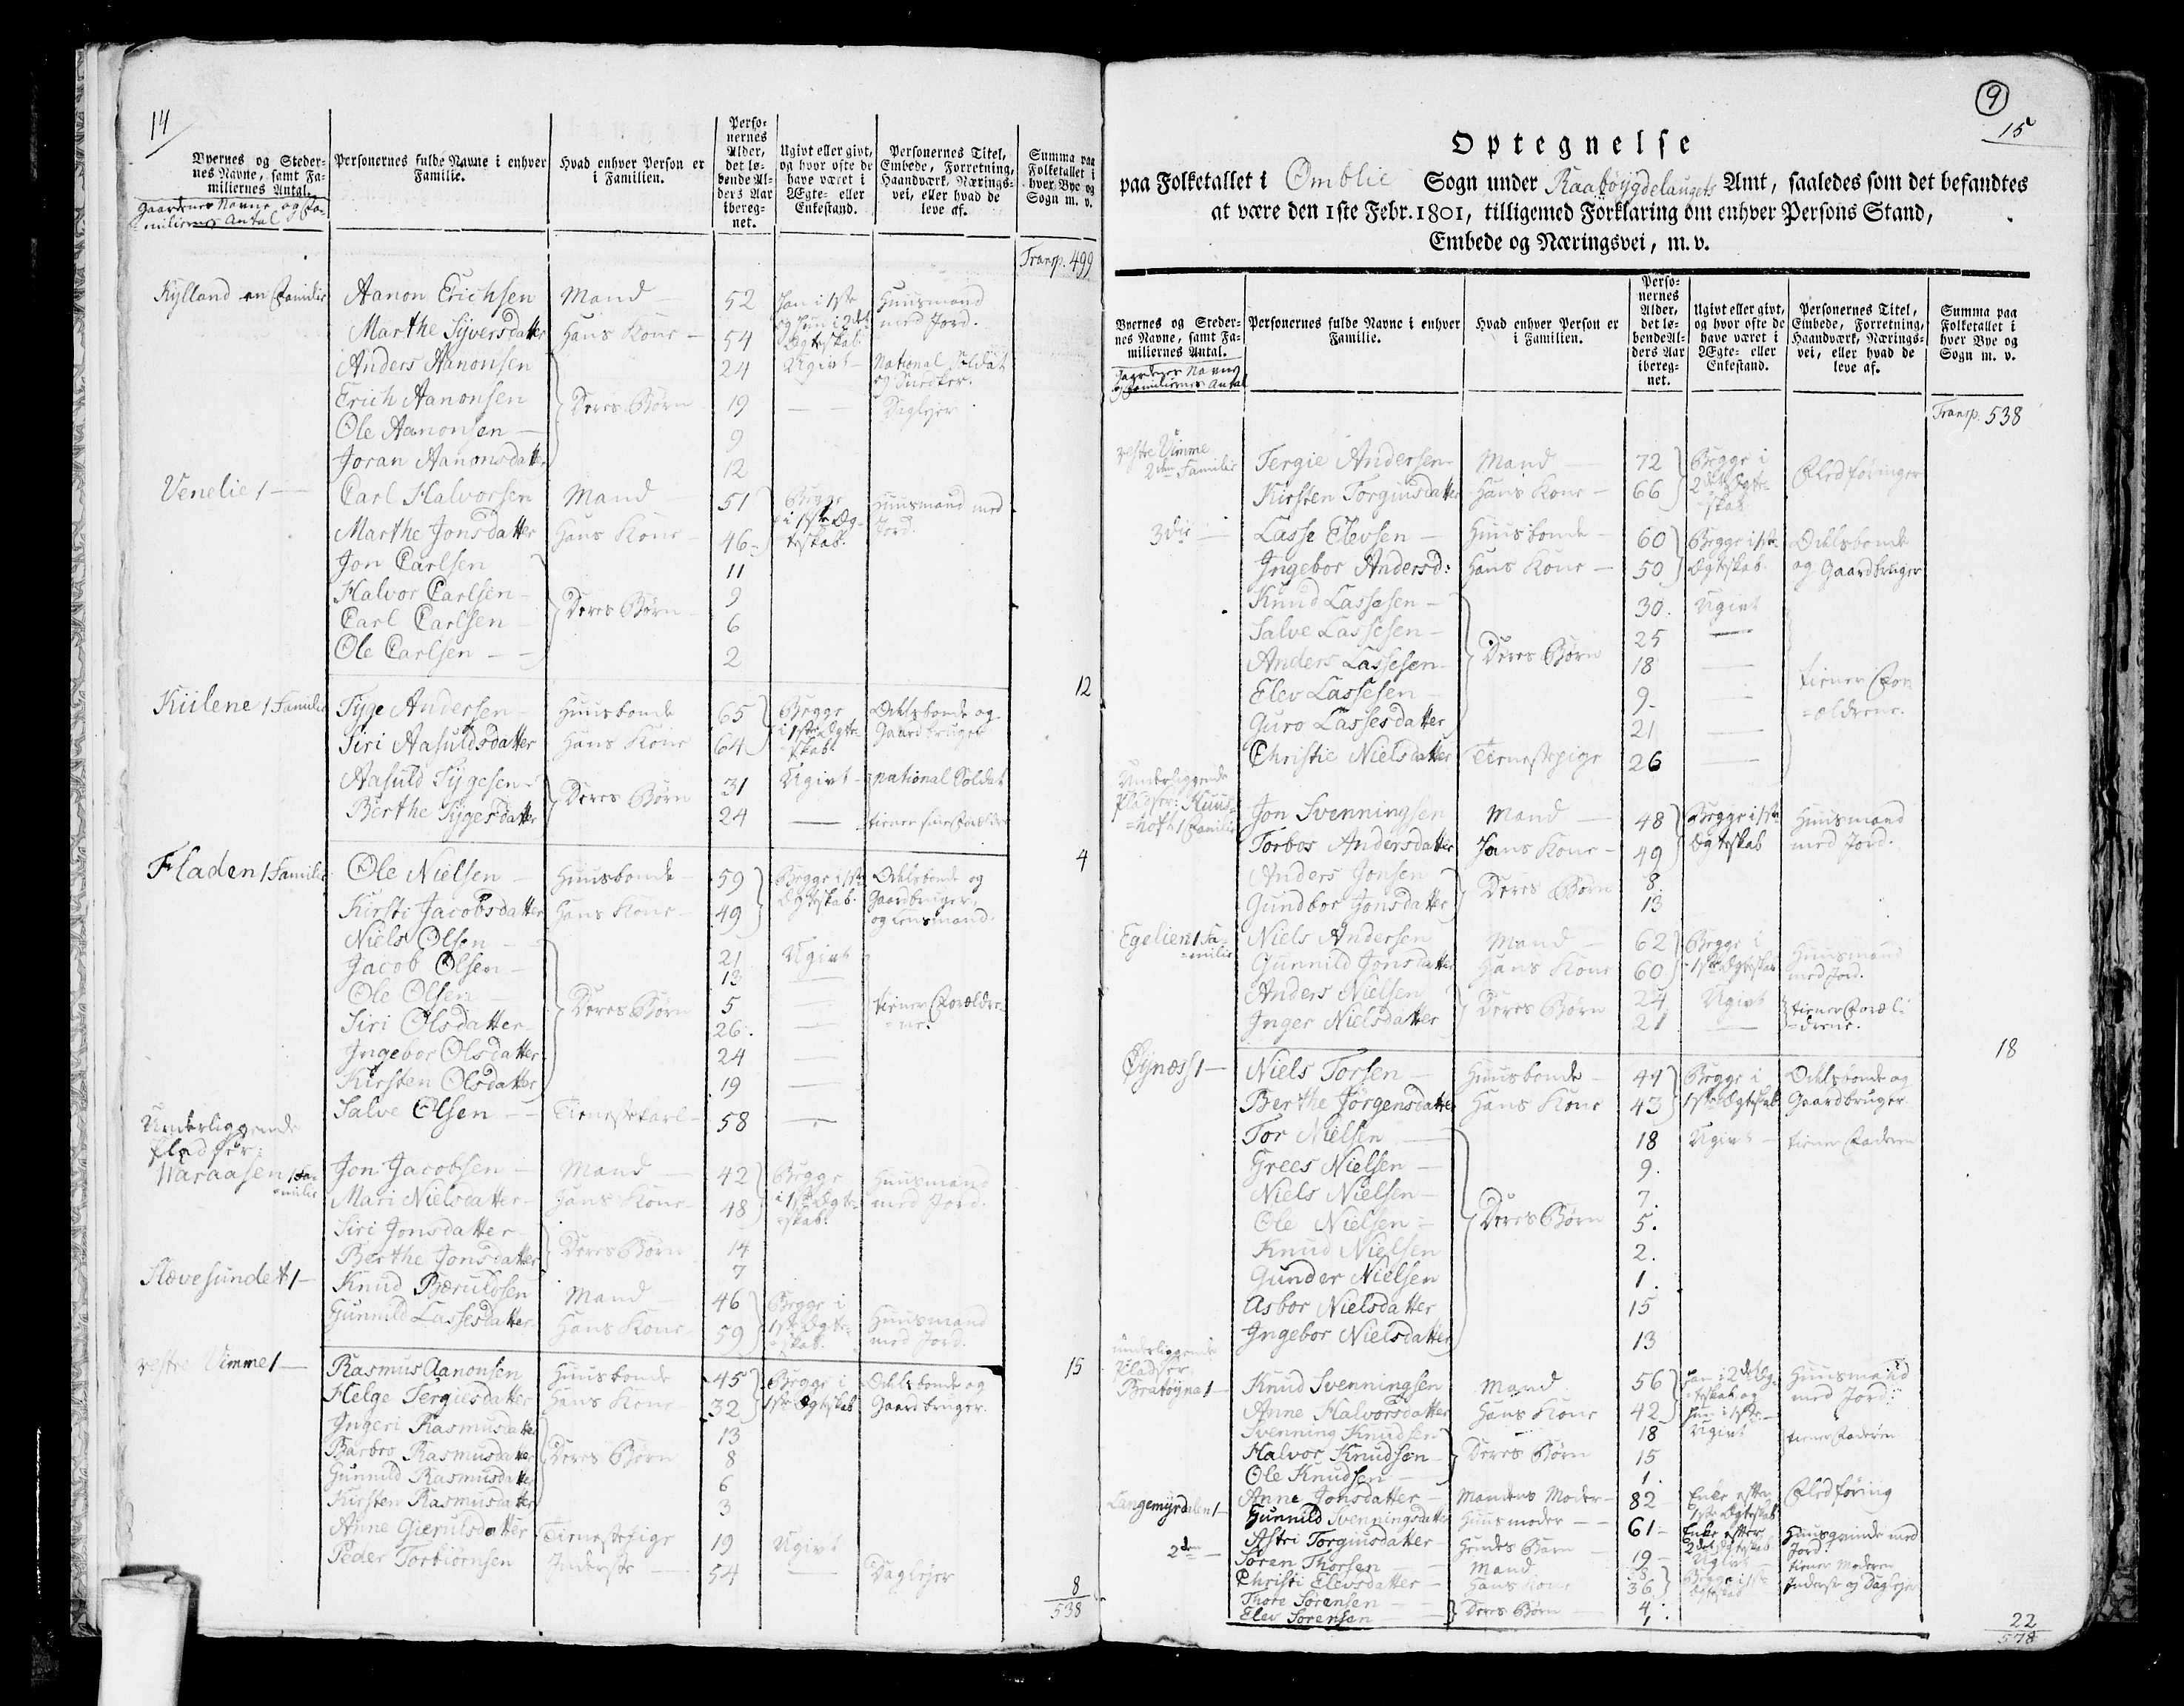 14
Byernes og Steder-
nes Navne, samt Fa-
miliernes Antal.
Gaardenes Navne og Fa-
miliernes Antal
Personernes fulde Navne i enhver
Familie.
Hvad enhver Person er
i Familien.
Perso-
nernes
Alder,
det lø-
bende Al-
ders Aar
ibereg-
net.
Ugivt eller givt,
og hvor ofte de
have været i
Ægte- eller
Enkestand.
Personernes Titel,
Embede, Forretning,
Haandværk, Nærings-
vei, eller hvad de
leve af.
Summa paa
Folketallet i
hver Bye og
Sogn m. v.
Transp. 499
Kylland en Familie Aanon Erichsen Mand 52 Han i 1ste og hun i 2det Ægteskab. Huusmand med Jord.
Marthe Syversdatter Hans Kone 54
Anders Aanonsen 24 Ugivt National Soldat og Snedker.
Erich Aanonsen Deres Børn 19 — Daglejer
Ole Aanonsen 9
Joran Aanonsdatter 12
Venelie 1 Carl Halvorsen Mand 51 Begge i 1ste Ægteskab. Huusmand med Jord.
Marthe Jonsdatter Hans Kone 46
Jon Carlsen 11
Halvor Carlsen Deres Børn 9
Carl Carlsen 6
Ole Carlsen 2
12
Kiilene 1 Familie Tyge Andersen Huusbonde 65 Begge i 1ste Ægteskab Odelsbonde og Gaardbruger
Siri Aasuldsdatter Hans Kone 64
Aasuld Tygesen Deres Børn 31 Ugivt national Soldat
Berthe Tygesdatter 24 — tiener sine Forældre
4
Fladen 1 Familie Ole Nielsen Huusbonde 59 Begge i 1ste Ægteskab. Odelsbonde og Gaardbruger,
Kirsti Jacobsdatter Hans Kone 49
Niels Olsen 21 Ugivt
Jacob Olsen 13 —
Ole Olsen Deres Børn 5 — tiener Forældrene.
Siri Olsdatter 26 —
Ingebor Olsdatter 24 —
Kirsten Olsdatter 19 —
Salve Olsen Tienestekarl 58 —
Underliggende
Pladser:
Waraasen 1 Familie Jon Jacobsen Mand 42 Begge i 1ste Ægteskab. Huusmand med Jord.
Mari Nielsdatter Hans Kone 48
Siri Jonsdatter Deres Børn 14
Berthe Jonsdatter 7
Slævesundet 1 Knud Bæruldsen Mand 46 Begge i 1ste Ægteskab. Huusmand med Jord.
Gunnild Lassesdatter Hans Kone 59
15
vestre Vimme 1 Rasmus Aanonsen Huusbonde 45 Begge i 1ste Ægteskab Odelsbonde og Gaardbruger.
Helge Tergiesdatter Hans Kone 32
Ingeri Rasmusdatter 13
Barbro Rasmusdatter Deres Børn 8
Gunnild Rasmusdatter 6
Kirsten Rasmusdatter 3
Anne Gierulsdatter Tienestepige 19 Ugivt
Peder Torbiørnsen Inderste 54 — Daglejer
8
538
9
15
Optegnelse
paa Folketallet i Omblie Sogn under Raabøygdelaugets Amt, saaledes som det befandtes
at være den 1ste Febr. 1801, tilligemed Forklaring om enhver Persons Stand,
Embede og Næringsvei, m. v.
Byernes og Steder-
nes Navne, samt Fa-
miliernes Antal.
Gaardenes Navne
og Familiernes Antal
Personernes fulde Navne i enhver
Familie.
Hvad enhver Person er
i Familien.
Perso-
nernes
Alder,
det lø-
bende Al-
ders Aar
ibereg-
net.
Ugivt eller givt,
og hvor ofte de
have været i
Ægte- eller
Enkestand.
Personernes Titel,
Embede, Forretning,
Haandværk, Nærings-
vei, eller hvad de
leve af.
Summa paa
Folketallet i
hver Bye og
Sogn m. v.
Transp. 538
vestre Vimme 2den Familie Tergie Andersen Mand 72 Begge i 2det Ægteskab Flødføringer
Kirsten Torgiusdatter Hans Kone 66
3die Lasse Elevsen Huusbonde 60 Begge i 1ste Ægteskab. Odelsbonde og Gaardbruger
Ingebor Andersd: Hans Kone 50
Knud Lassesen 30. Ugivt
Salve Lassesen 25 —
Anders Lassesen Deres Børn 18 — tiener Forældrene.
Elev Lassesen 9 —
Guro Lassesdatter 21 —
Christie Nielsdatter Tienestepige 26 —
Underliggende
Pladser: 1 Familie Jon Svenningsen Mand 48 Begge i 1ste Ægteskab Huusmand med Jord.
Torbor Andersdatter Hans Kone 49
Anders Jonsen Deres Børn 8
Gundbor Jonsdatter 13
Egelien 1 Familie Niels Andersen Mand 62 Begge i 1ste Ægteskab Huusmand med Jord.
Gunnild Jonsdatter Hans Kone 60
Anders Nielsen Deres Børn 24 Ugivt tiener Forældrene.
Inger Nielsdatter 21 —
18
Øynæss 1 Niels Torsen Huusbonde 44 Begge i 1ste Ægteskab Odelsbonde og Gaardbruger
Berthe Jørgensdatter Hans Kone 43
Tor Nielsen 18 Ugivt tiener Faderen
Grees Nielsen 9.
Niels Nielsen 7.
Ole Nielsen Deres Børn 5.
Knud Nielsen 2.
Gunder Nielsen 1.
Asbor Nielsdatter 15
Ingebor Nielsdatter 13
underliggende
Pladser
Bratøyna 1 Knud Svenningsen Mand 56 Han i 2det Ægteskab og hun i 1ste Huusmand med Jord.
Anne Halvorsdatter Hans Kone 42
Svenning Knudsen 18 Ugivt tiener Faderen
Halvor Knudsen Deres Børn 15
Ole Knudsen 1.
Anne Jonsdatter Mandens Moder 82 Enke efter 1ste Ægteskab Flødføring
Langemyrdalen 1 Gunnild Svenningsdatter Huusmoder 61 Enke efter 2det Ægteskab Huusqvinde med Jord.
Astri Torgiusdatter Hendes Barn 19 Ugivt tiener Moderen
2den Søren Thorsen Mand Begge i 1ste Ægteskab Inderste og Daglejer
Christi Elevsdatter Hans Kone 36
Thore Sørensen Deres Børn 4
Elev Sørensen 1
22
578